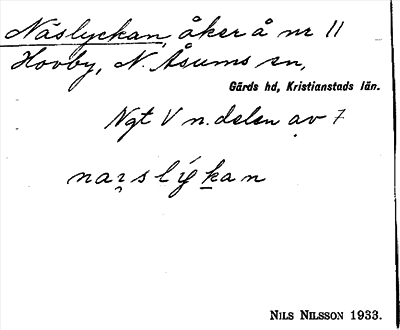 Näslyckan, åker å nr 11
Hovby, N. Åsums sn,
Gärds hd, Kristianstads län.
Ngt V n. delen av 7.
narslýkan
NILS NILSSON 1933.